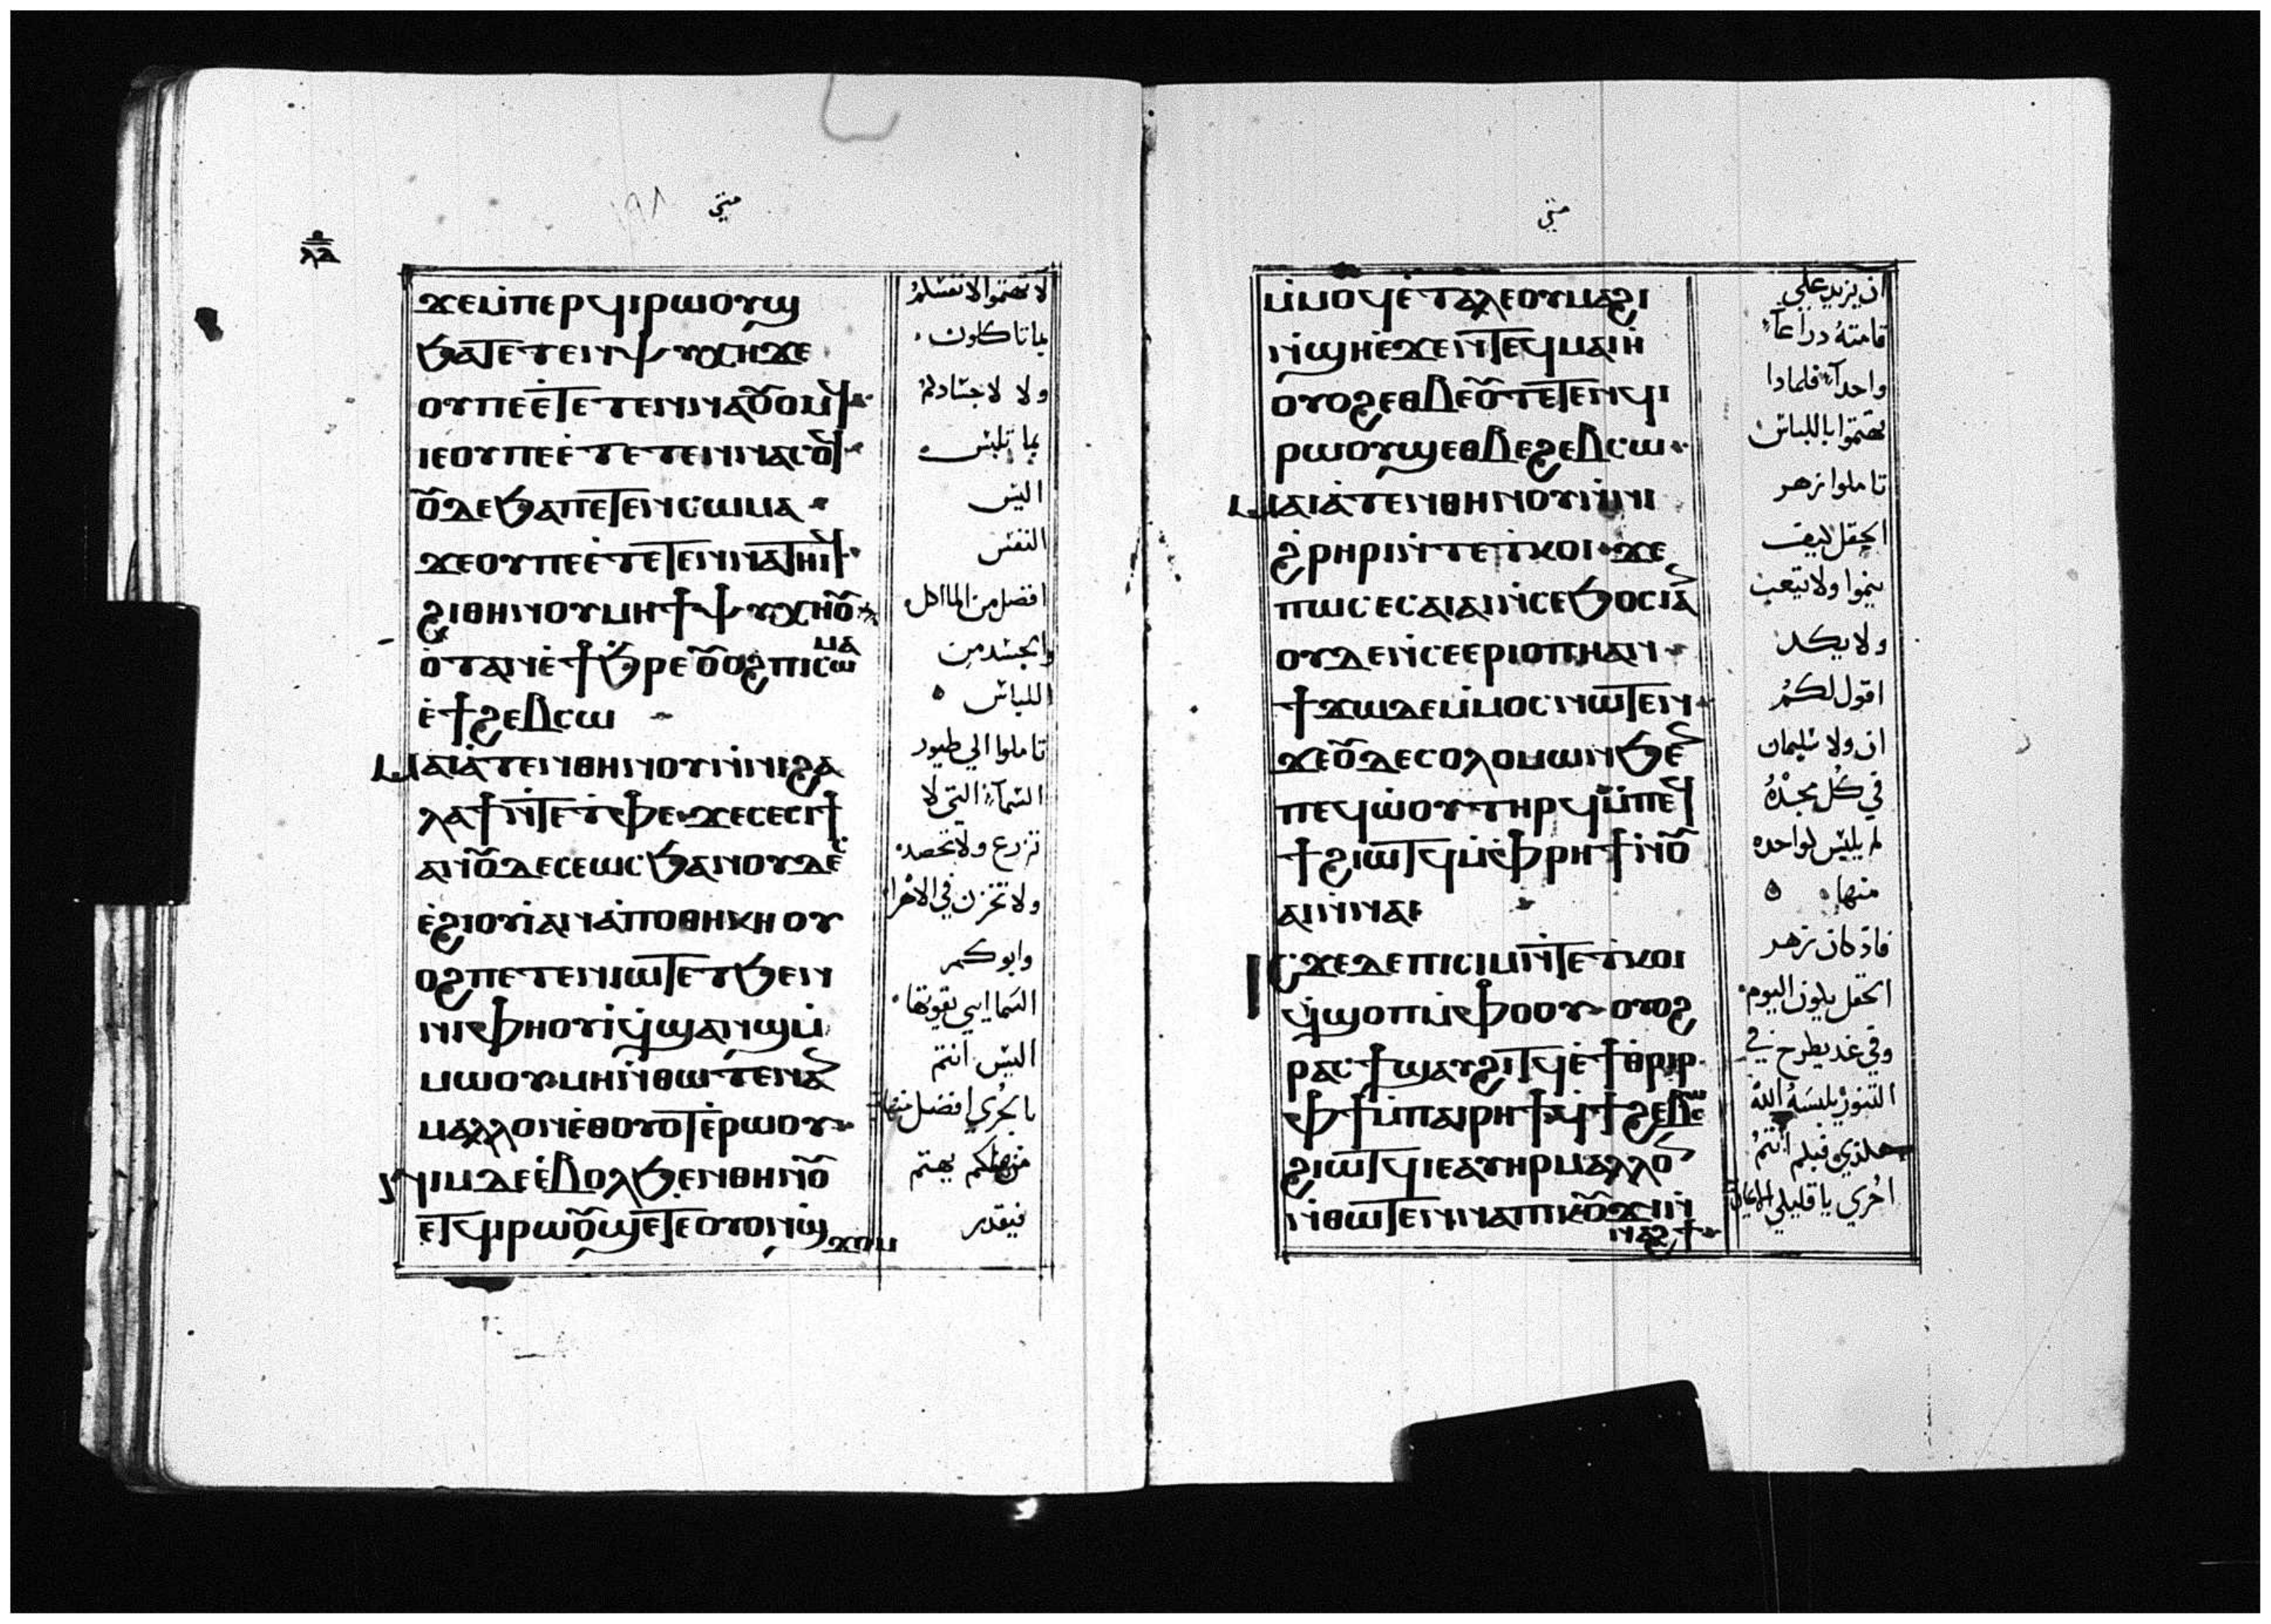 متي
ⲗⲃ
ϫⲉⲙ̀ⲡⲉⲣϥⲓⲣⲱⲟⲩϣ
ϧⲁⲧⲉⲧⲉⲛⲯⲩⲭⲏϫⲉ
ⲟⲩⲡⲉⲉ̀ⲧⲉⲧⲉⲛⲛⲁⲟⲩⲟⲙϥ
ⲓⲉⲟⲩⲡⲉⲉ̀ⲧⲉⲧⲉⲛⲛⲁⲥⲟϥ
ⲟⲩⲇⲉϧⲁⲡⲉⲧⲉⲛⲥⲱⲙⲁ
ϫⲉⲟⲩⲡⲉⲉ̀ⲧⲉⲧⲉⲛⲛⲁⲧⲏⲓϥ
ϩⲓⲑⲏⲛⲟⲩⲙⲏϯⲯⲩⲭⲏⲟⲩ
ⲟ̀ⲧⲁⲛⲉ̀ϯϧ̀ⲣⲉⲟⲩⲟϩⲡⲓⲥⲱⲙⲁ
ⲉ̀ϯϩⲉⲃⲥⲱ
ⲙⲁⲓⲁ̀ⲧⲉⲛⲑⲏⲛⲟⲩⲛ̀ⲛⲓϩⲁ
ⲗⲁϯⲛ̀ⲧⲉⲧ̀ⲫⲉϫⲉⲥⲉⲥⲓϯ
ⲁⲛⲟⲩⲇⲉⲥⲉⲱⲥϧⲁⲛⲟⲩⲇⲉ
ⲉ̀ϩⲓⲟⲩⲓ̀ⲁⲛⲁ̀ⲡⲟⲑⲏⲕⲏⲟⲩ
ⲟϩⲡⲉⲧⲉⲛⲓⲱⲧⲉⲧϧⲉⲛ
ⲛⲓⲫⲏⲟⲩⲓ̀ϥ̀ϣⲁⲛϣⲙ̀
ⲙⲱⲟⲩⲙⲏⲛ̀ⲑⲱⲧⲉⲛⲁⲛ
ⲙⲁⲗⲗⲟⲛⲉ̀ⲑⲟⲩⲟⲧⲉ̀ⲣⲱⲟⲩ
ⲛⲓⲙⲇⲉⲉ̀ⲃⲟⲗϧⲉⲛⲑⲏⲛⲟⲩ
ⲉⲧϥⲓⲣⲱⲟⲩϣⲉⲧⲉⲟⲩⲟⲛϣ̀ϫⲟⲙ
لا تهتموا لانفسكم
بما تاكلون
ولا لاجسادكم
بما تلبس
اليس
النفس
افضل من الماكل
والجسد من
اللباس
تاملوا الي طيور
السمآء التي لا
تزرع ولا تحصد
ولا تخزن في الاهرا
وابوكم
السمايي يقوتها
اليس انتم
بالحري افضل منها
من منكم يهتم
فيقدر
متي
ⲙ̀ⲙⲟϥⲉ̀ⲧⲁⲗⲉⲟⲩⲙⲁϩⲓ
ⲛ̀ϣⲏⲉ̀ϫⲉⲛⲧⲉϥⲙⲁⲓⲏ
ⲟⲩⲟϩⲉⲑⲃⲉⲟⲩⲧⲉⲧⲉⲛϥⲓ
ⲣⲱⲟⲩϣⲉⲑⲃⲉϩⲉⲃⲥⲱ
ⲙⲁⲓⲁ̀ⲧⲉⲛⲑⲏⲛⲟⲩⲛ̀ⲛⲓ
ϩ̀ⲣⲏⲣⲓⲛ̀ⲧⲉⲧ̀ⲕⲟⲓϫⲉ
ⲡⲱⲥⲥⲉⲁⲓⲁⲓⲛ̀ⲥⲉϧⲟⲥⲓⲁⲛ
ⲟⲩⲇⲉⲛ̀ⲥⲉⲉⲣⲓⲟⲡⲏⲁⲛ
ϯϫⲱⲇⲉⲙ̀ⲙⲟⲥⲛⲱⲧⲉⲛ
ϫⲉⲟⲩⲇⲉⲥⲟⲗⲟⲙⲱⲛϧⲉⲛ
ⲡⲉϥⲱ̀ⲟⲩⲧⲏⲣϥⲙ̀ⲡⲉϥ
ϯϩⲓⲱⲧϥⲙ̀ⲫⲣⲏϯⲛ̀ⲟⲩ
ⲁⲓⲛ̀ⲛⲁⲓ
ⲓⲥϫⲉⲇⲉⲡⲓⲥⲓⲙⲛ̀ⲧⲉⲧ̀ⲕⲟⲓ
ϥ̀ϣⲟⲡⲙ̀ⲫⲟⲟⲩⲟⲩⲟϩ
ⲣⲁⲥϯϣⲁⲩϩⲓⲧϥⲉ̀ϯⲑⲣⲓⲣ
ⲫϯⲙ̀ⲡⲁⲓⲣⲏϯϥ̀ϯϩⲉⲃⲥⲱ
ϩⲓⲱⲧϥⲓⲉⲁⲩⲏⲣⲙⲁⲗⲗⲟⲛ
ⲛ̀ⲑⲱⲧⲉⲛⲛⲁⲡⲓⲕⲟⲩϫⲓⲛ̀
ⲛⲁϩϯ
ان يزيد علي
قامته دراعآ
واحدآ فلمادا
تهتموا باللباس
تاملوا زهر
الحقل كيف
ينموا ولا يتعب
ولا يكد
اقول لكم
ان ولا سليمان
في كل مجده
لم يلبس كواحده
منها
فاذ كان زهر
الحقل يكون اليوم
وفي غد يطرح في
التنور يلبسه الله
هكذي فبكم انتم
احري يا قليلي الايمان